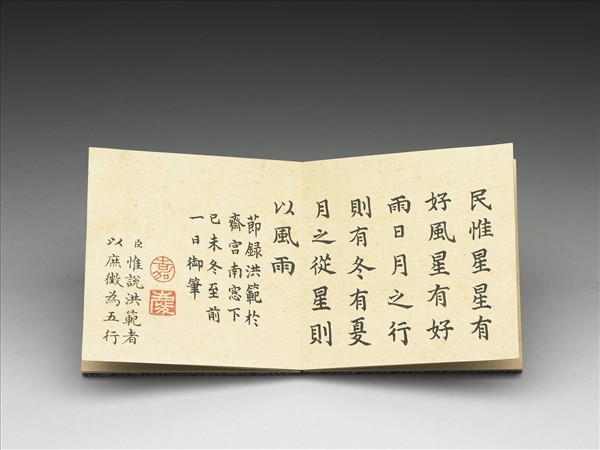 民惟星星有
好風星有好
雨日月之行
則有冬有夏
月之從星則
以風雨
節録洪範於
齋宮南窓下
己未冬至前
一日御筆
嘉
慶
臣惟說洪範者
以庶徵為五行